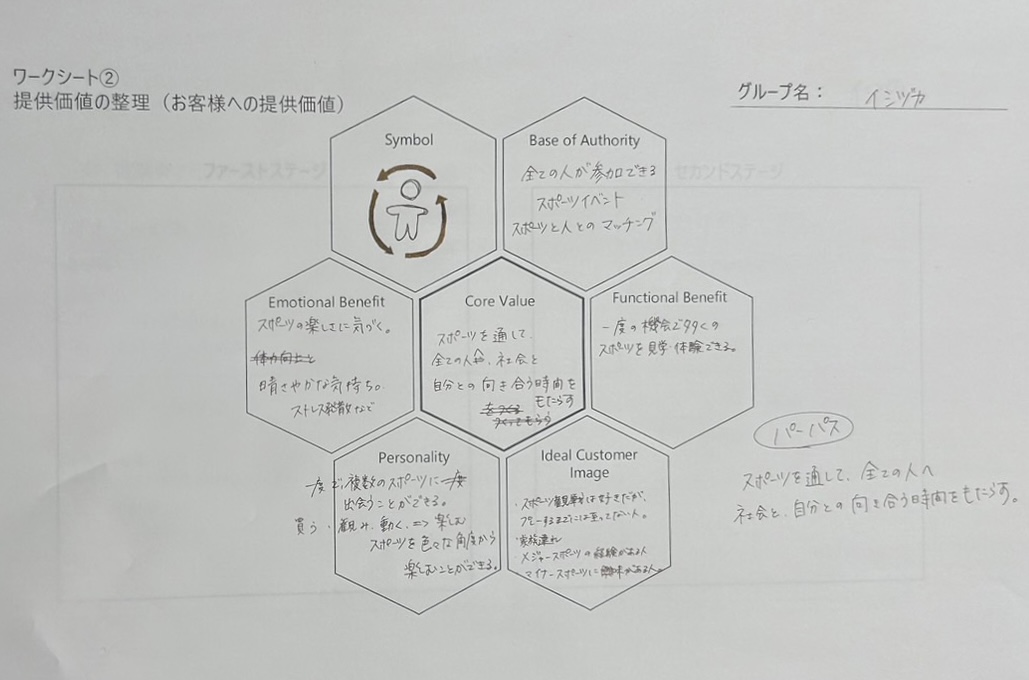 ワークシート②
提供価値の整理（お客様への提供価値）
グループ名：イシヅカ
ファーストステージ
セカンドステージ
Symbol
Base of Authority
全ての人が参加できる
スポーツイベント
スポーツと人とのマッチング
Emotional Benefit
スポーツの楽しさに気づく。
体力向上と
晴さやかな気持ちの
ストレス発散など
Core Value
スポーツを通して、
全ての人へ、社会と
自分との向き合う時間を
をつくる もたらす
つくってもらう
Functional Benefit
一度の機会で多くの
スポーツを見学・体験できる。
Personality
一度で、複数のスポーツに一度
出会うことができる。
買う・観み、動く、⇒楽しむ
スポーツを色々な角度から
楽しむことができる。
Ideal Customer
Image
・スポーツ観戦は好きだが、
プレーするまでには至ってない人。
・家族連れ
・メジャースポーツの経験がある人
マイナースポーツに興味がある人。
パーパス
スポーツを通して、全ての人へ
社会と、自分との向き合う時間をもたらす。